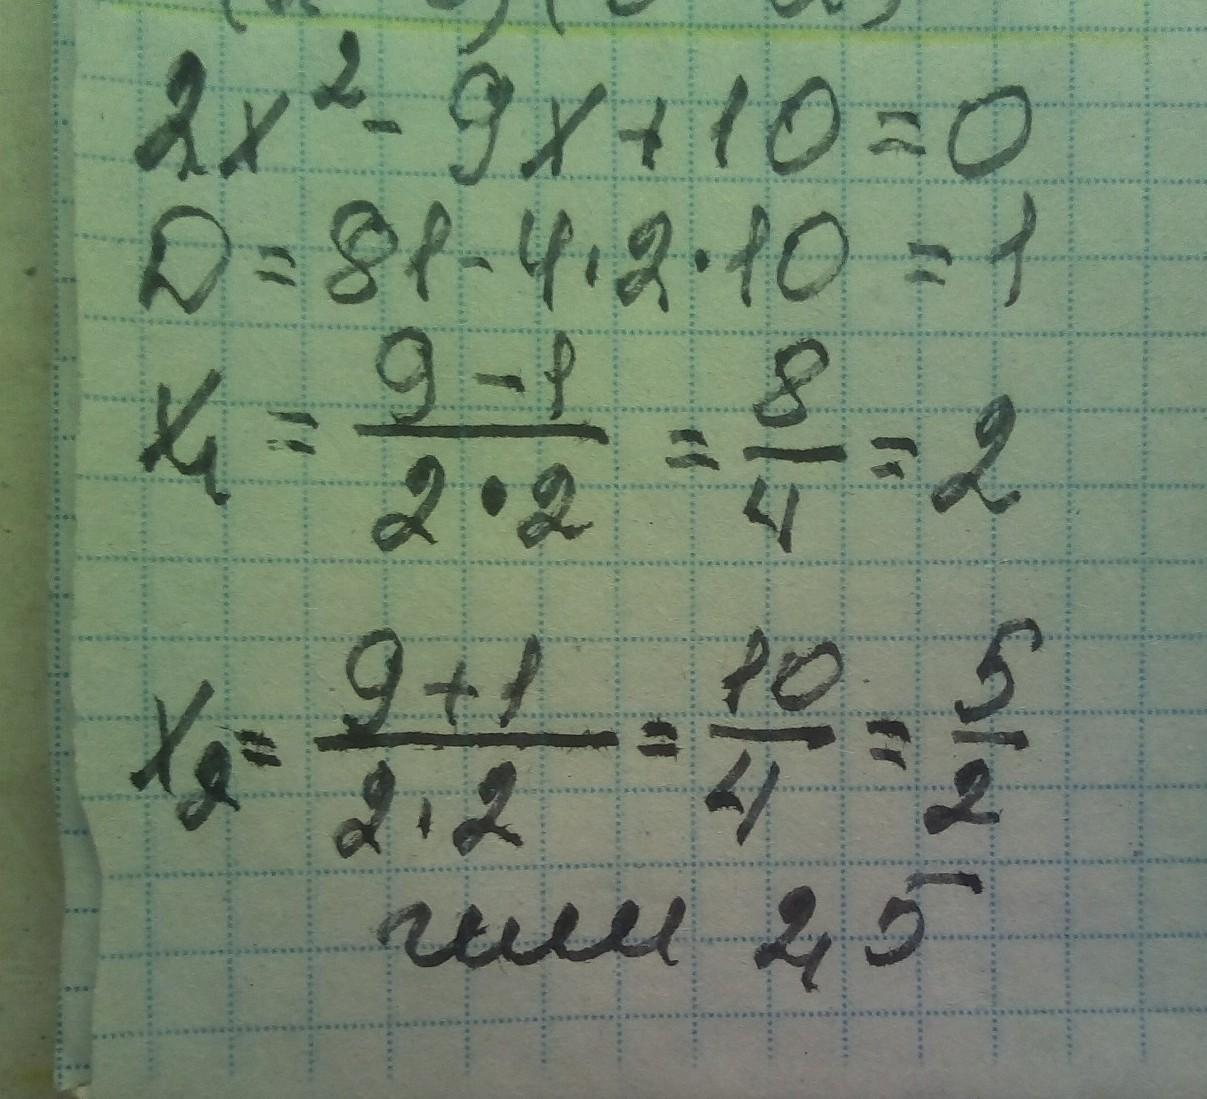 2x² - 9x + 10 = 0
D = 81 - 4 · 2 · 10 = 1
x₁ = (9 - 1)/(2 · 2) = 8/4 = 2
x₂ = (9 + 1)/(2 · 2) = 10/4 = 5/2
или 2,5